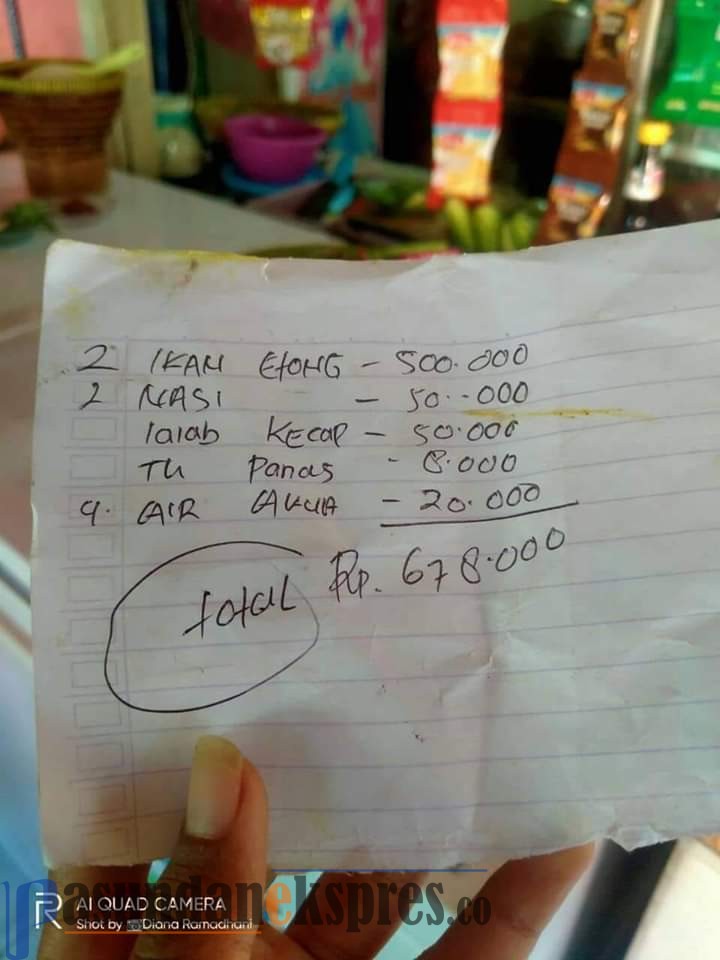 2 IKAN EtONG - 500.000
2 NASI - 50.-000
lalab KECAP - 50.000
TH Panas - 8.000
4. AIR AKUA - 20.000
total Rp. 678.000
pasundanekspres.co
R AI QUAD CAMERA
Shot by Diana Ramadhani